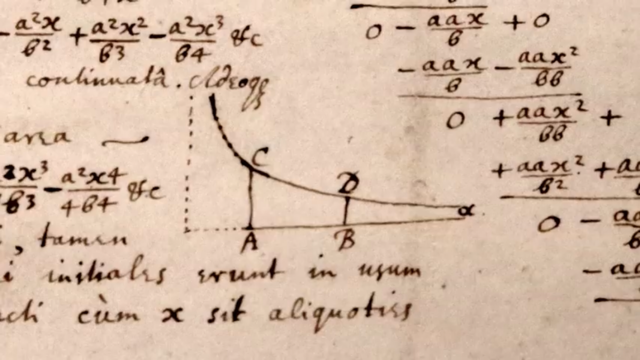 - a²x/b² + a²x²/b³ - a²x³/b4 &c
continuatâ. Adeoqɜ
area
x³/b3 - a²x4/4b4 &c
, tamen
i initiales erunt in usum
cùm x sit aliquoties
C
D
α
A
B
0 - aax/b + 0
- aax/b - aax²/bb
0 + aax²/bb +
+ aax²/b² +
0 -